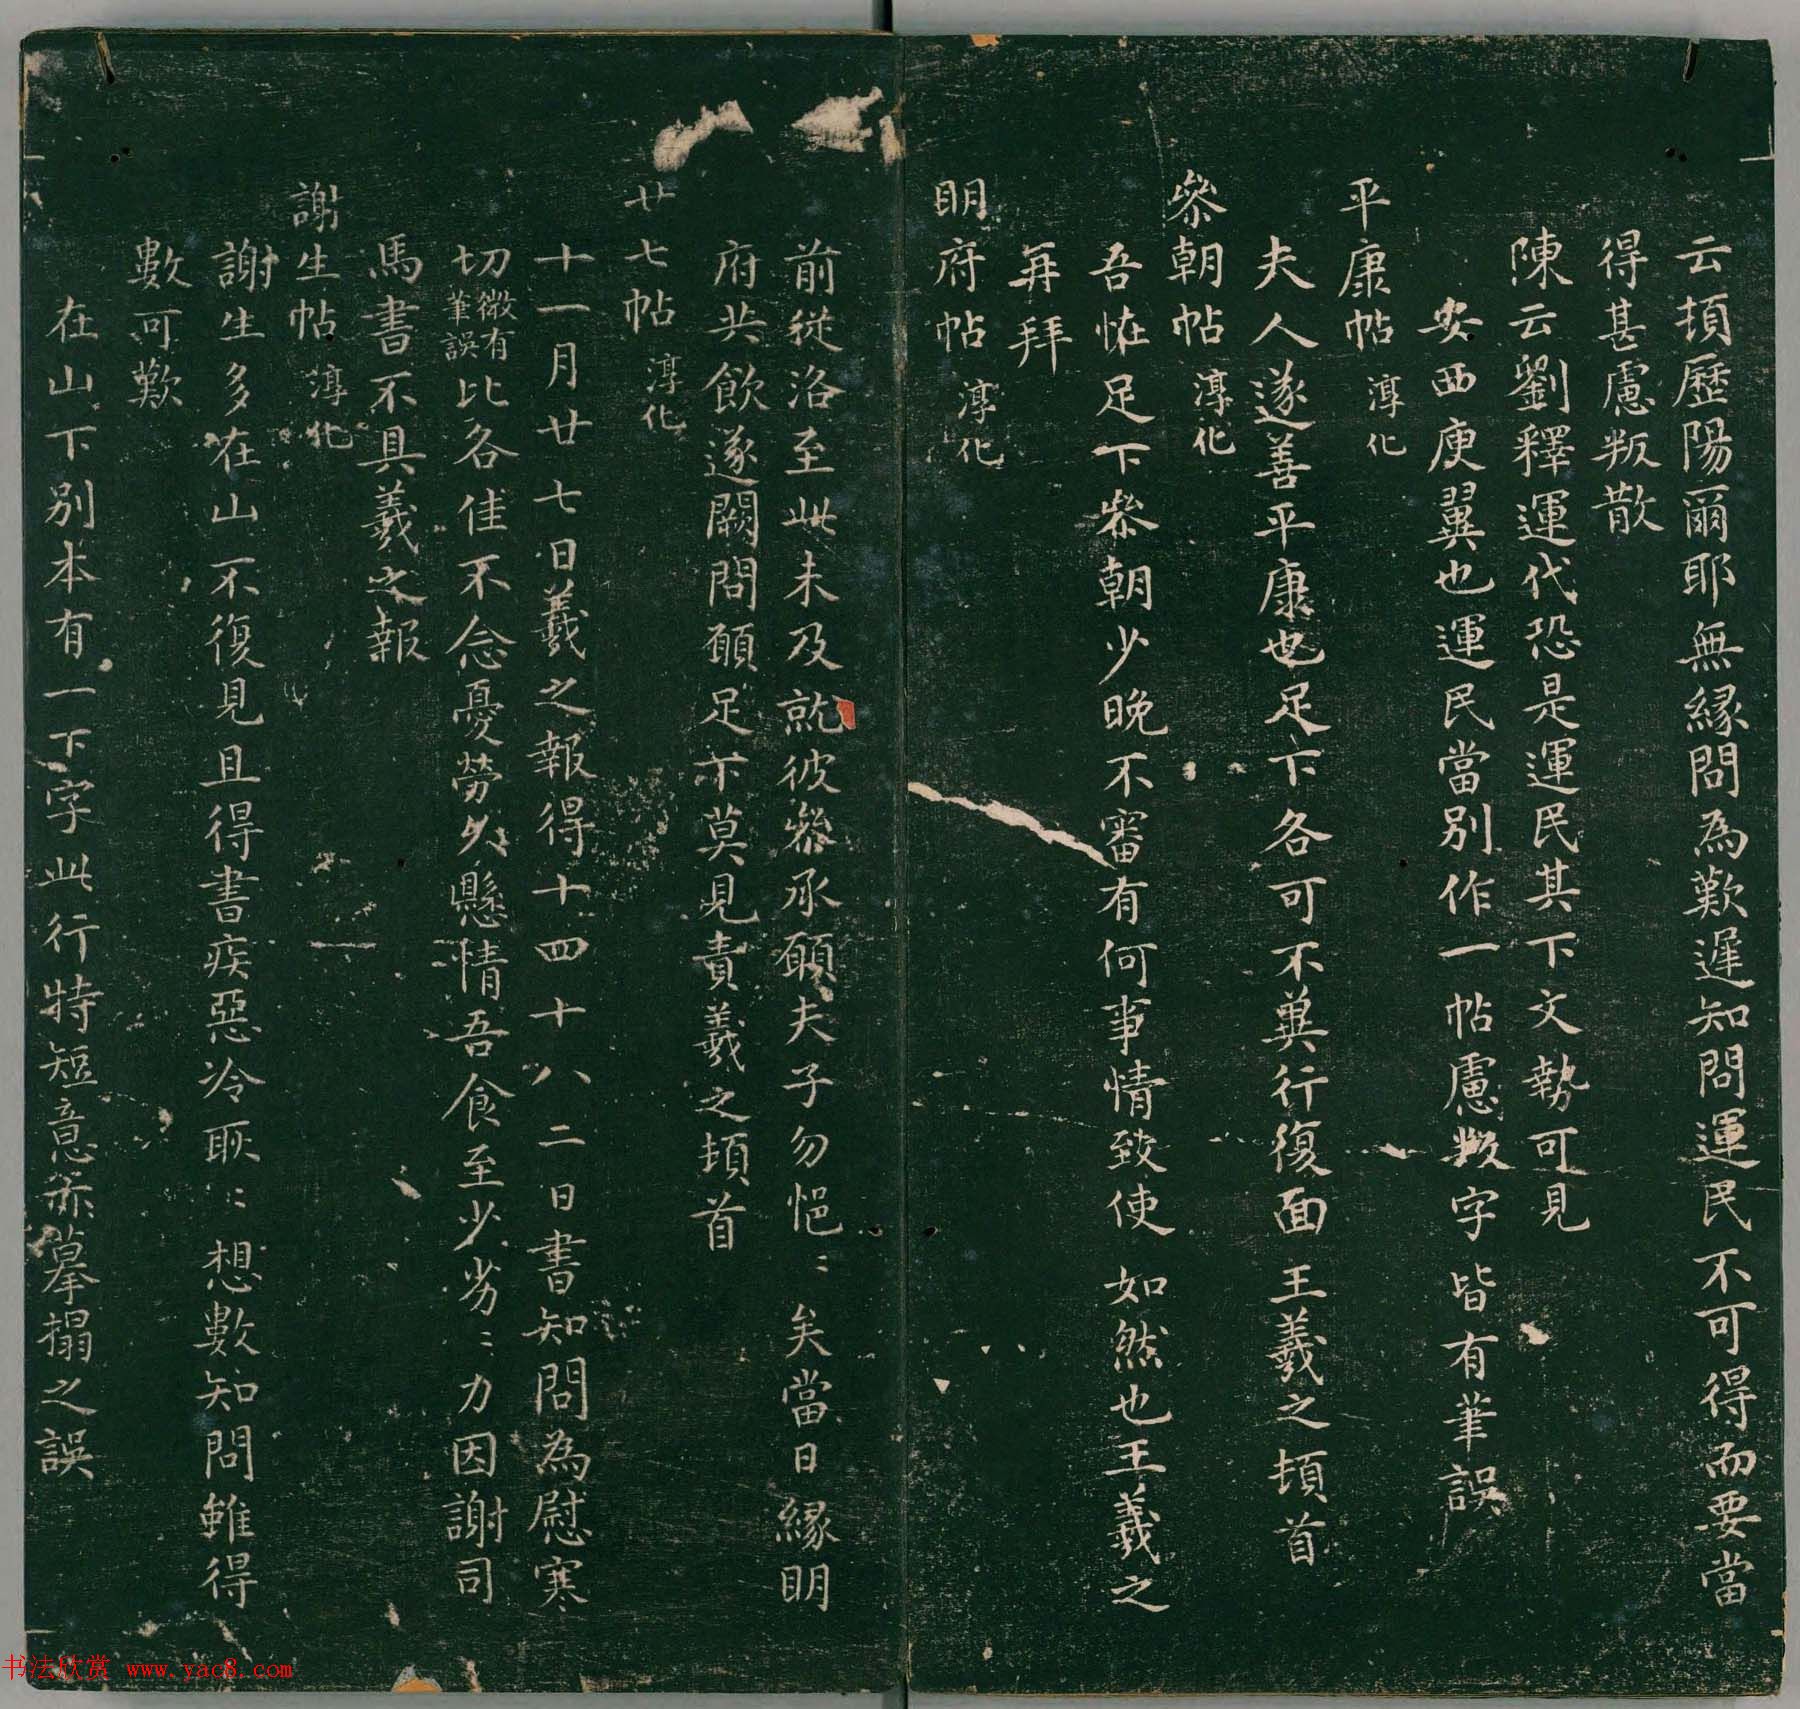 云頓歷陽爾耶無緣問為歎遲知問運民不可得而要當
得甚慮叛散
陳云劉釋運代恐是運民其下文勢可見
安西庾翼也運民當別作一帖慮叛字皆有筆誤
平康帖 淳化
夫人遂善平康也足下各可不冀行復面王羲之頓首
參朝帖 淳化
吾怪足下參朝少晚不審有何事情致使如然也王羲之
再拜
明府帖 淳化
前從洛至此未及就彼參承願夫子勿悒〻矣當日緣明
府共飲遂闕問願足下莫見責羲之頓首
廿七帖 淳化
十一月廿七日羲之報得十四十八二日書知問為慰寒
切微有筆誤比各佳不念憂勞久懸情吾食至少劣〻力因謝司
馬書不具羲之報
謝生帖 淳化
謝生多在山不復見且得書疾惡冷耿〻想數知問雖得
數可歎
在山下別本有一下字此行特短意亦摹搨之誤
书法欣赏 www.yac8.com